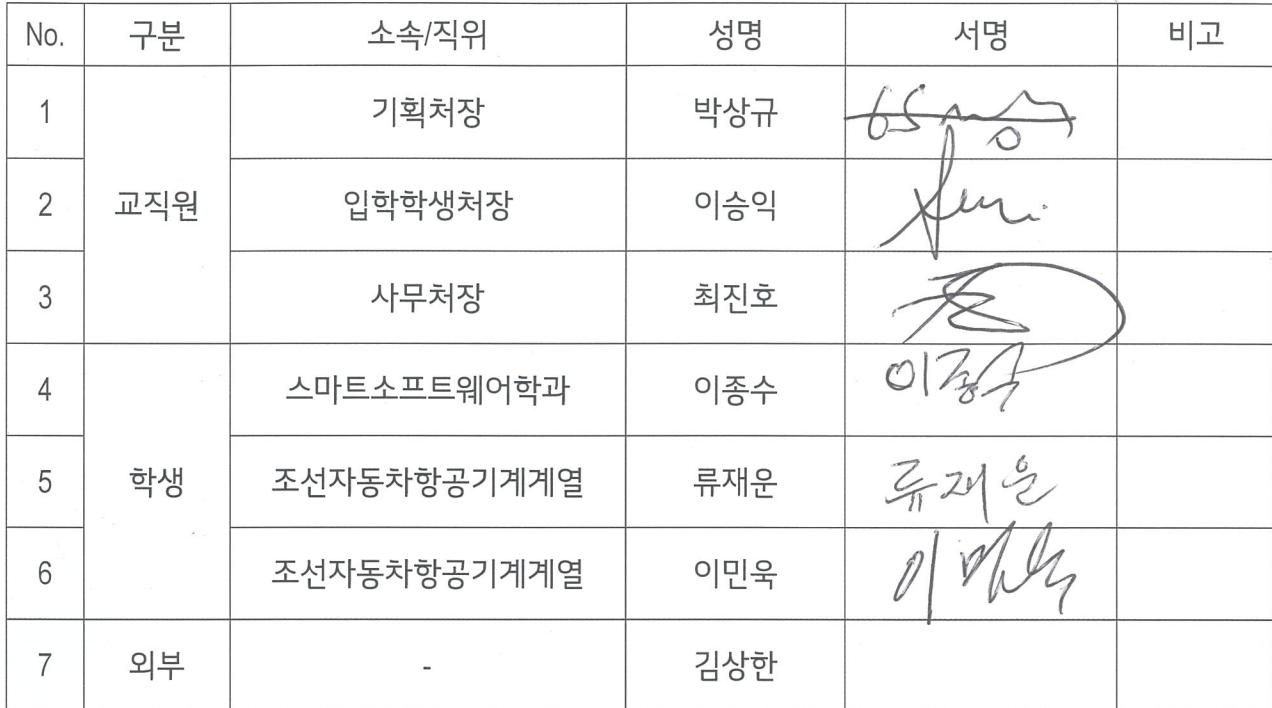 No. 구분 소속/직위 성명 서명 비고
1 기획처장 박상규
2 교직원 입학학생처장 이승익
3 사무처장 최진호
4 스마트소프트웨어학과 이종수 이종수
5 학생 조선자동차항공기계계열 류재운 류재운
6 조선자동차항공기계계열 이민욱 이민욱
7 외부 - 김상한